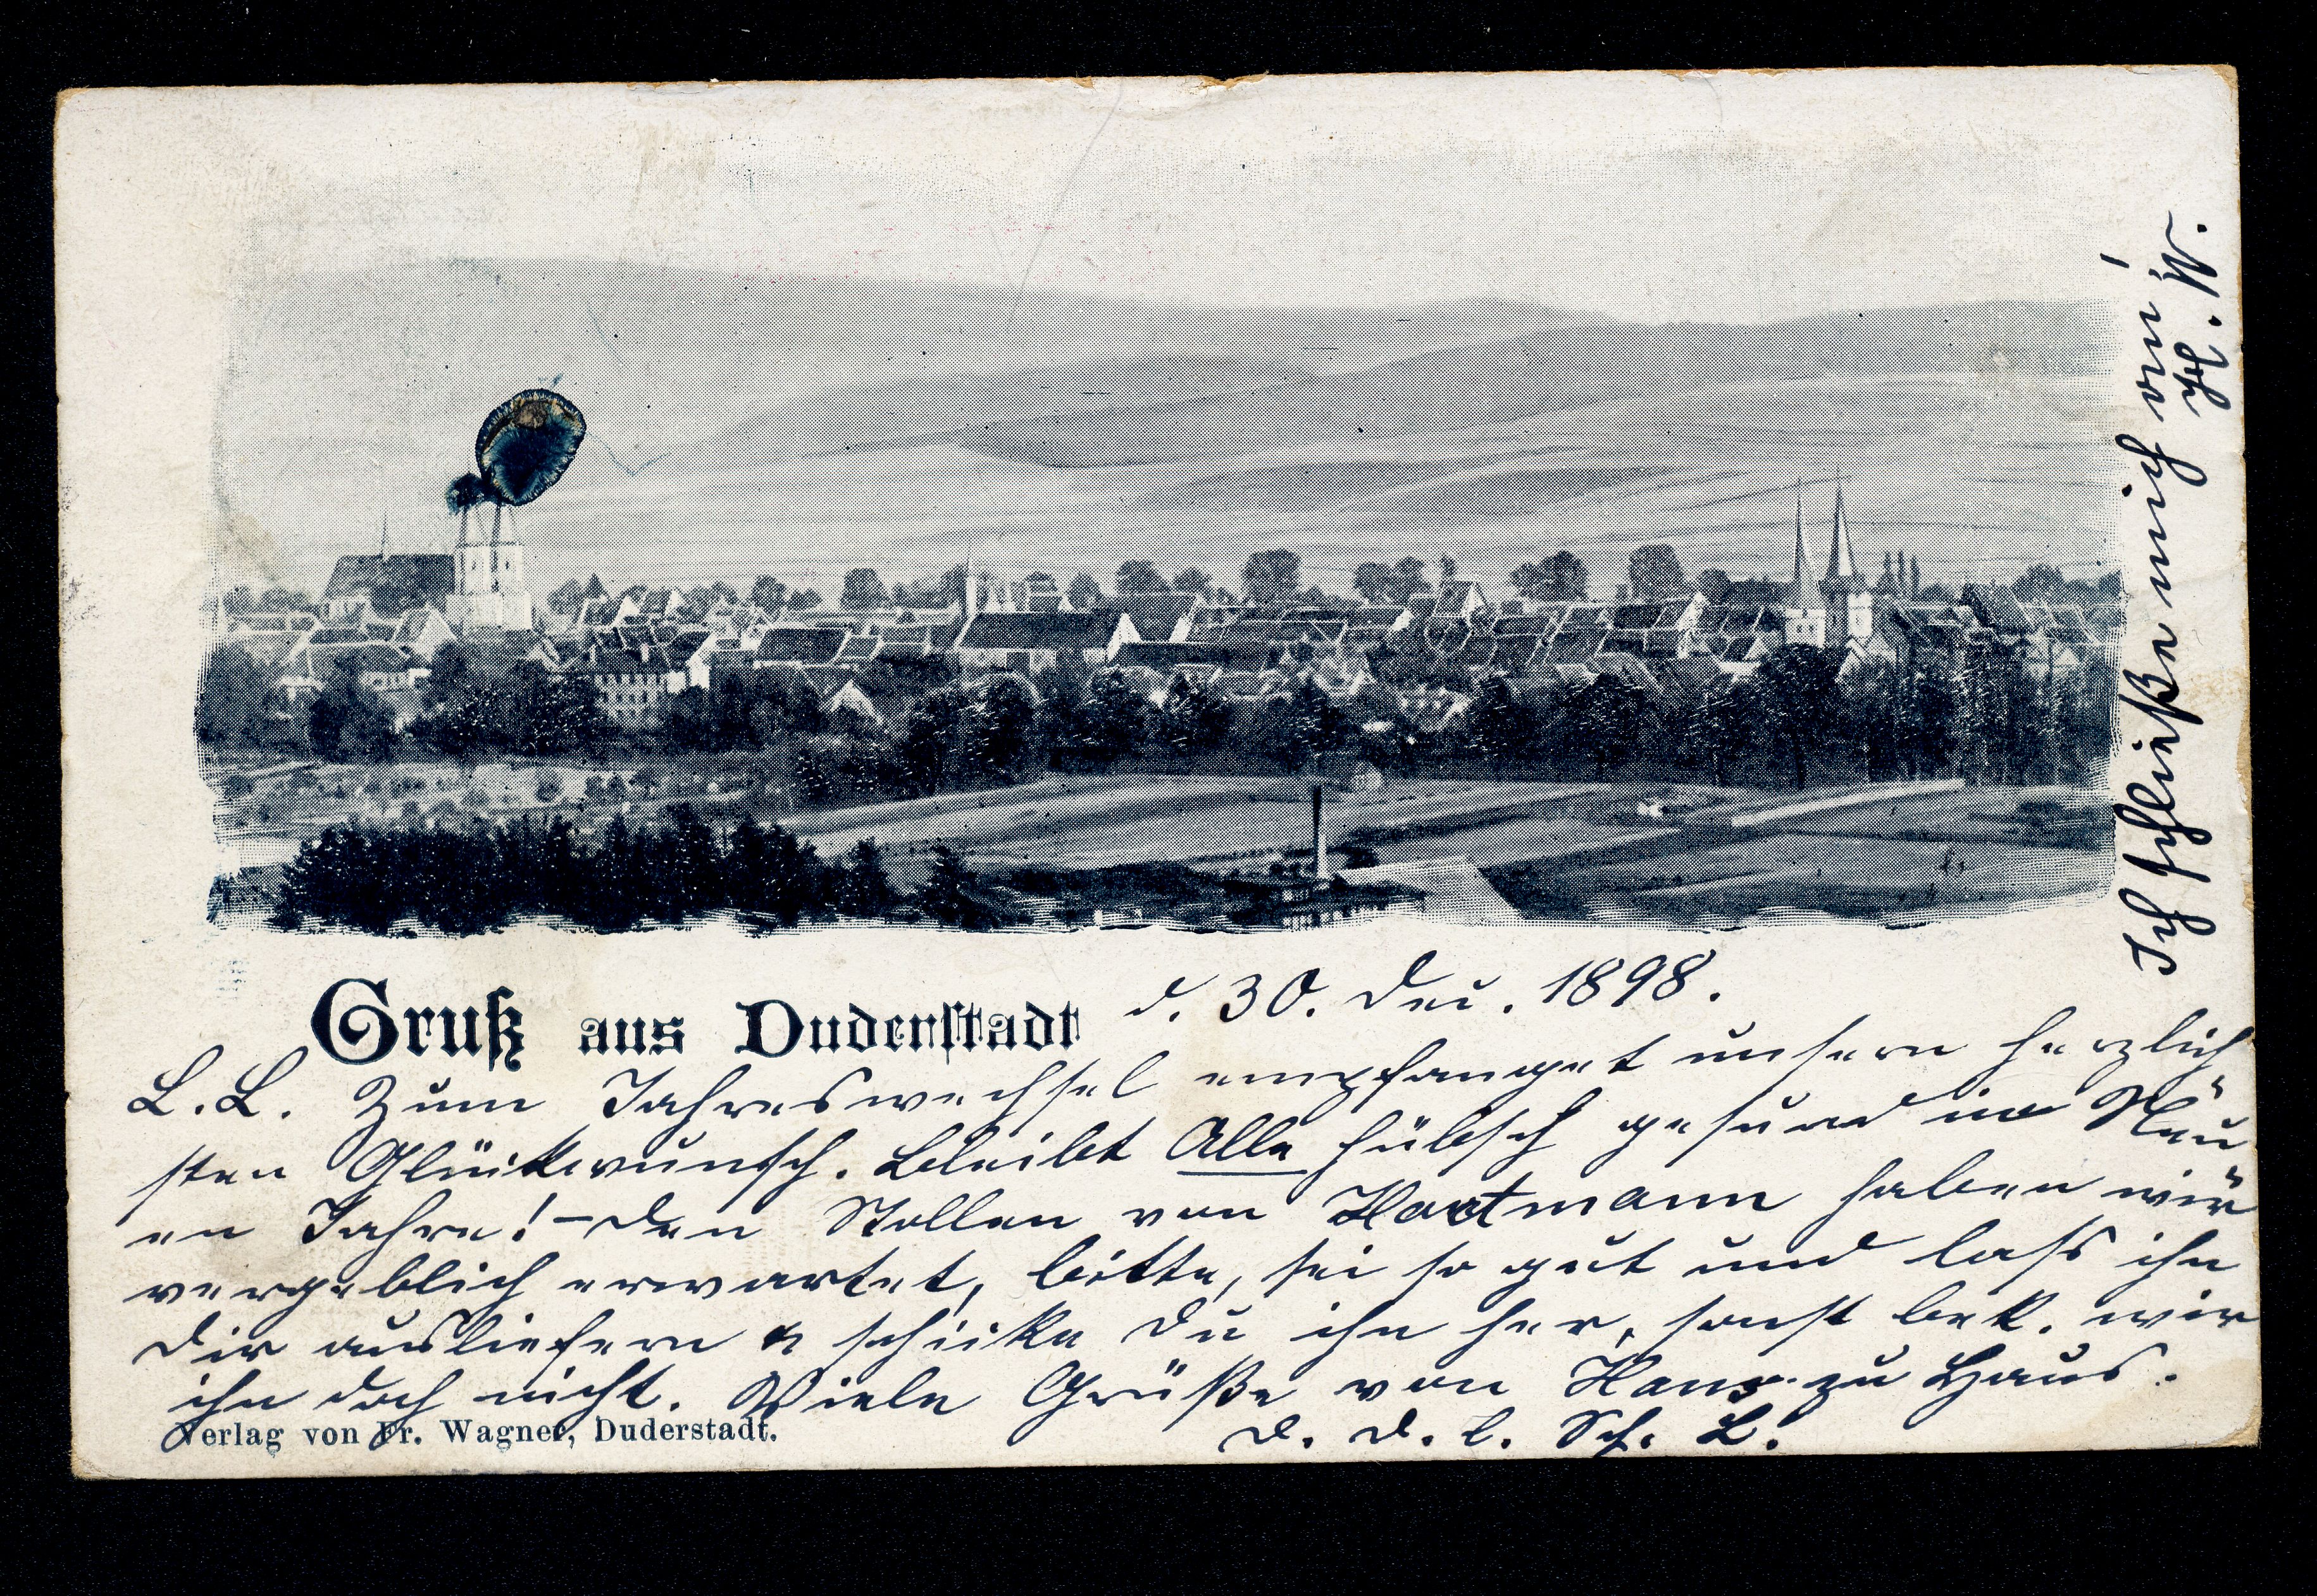 Gruß aus Duderstadt
d. 30. Dez. 1898.
L. L. Zum Jahreswechsel empfanget unsern herzlich
sten Glückwunsch. Bleibt Alle hübsch gesund im Neu
en Jahre! – Den Stollen von Hartmann haben wir
vergeblich erwartet, bitte, sei so gut und lass ihn
Dir ausliefern & schicke Du ihn her, sonst bek. wir
ihn doch nicht. Viele Grüße von Haus zu Haus.
D. D. l. Sch. L.
Verlag von Fr. Wagner, Duderstadt.
Ich schließe mich an!
H. W.